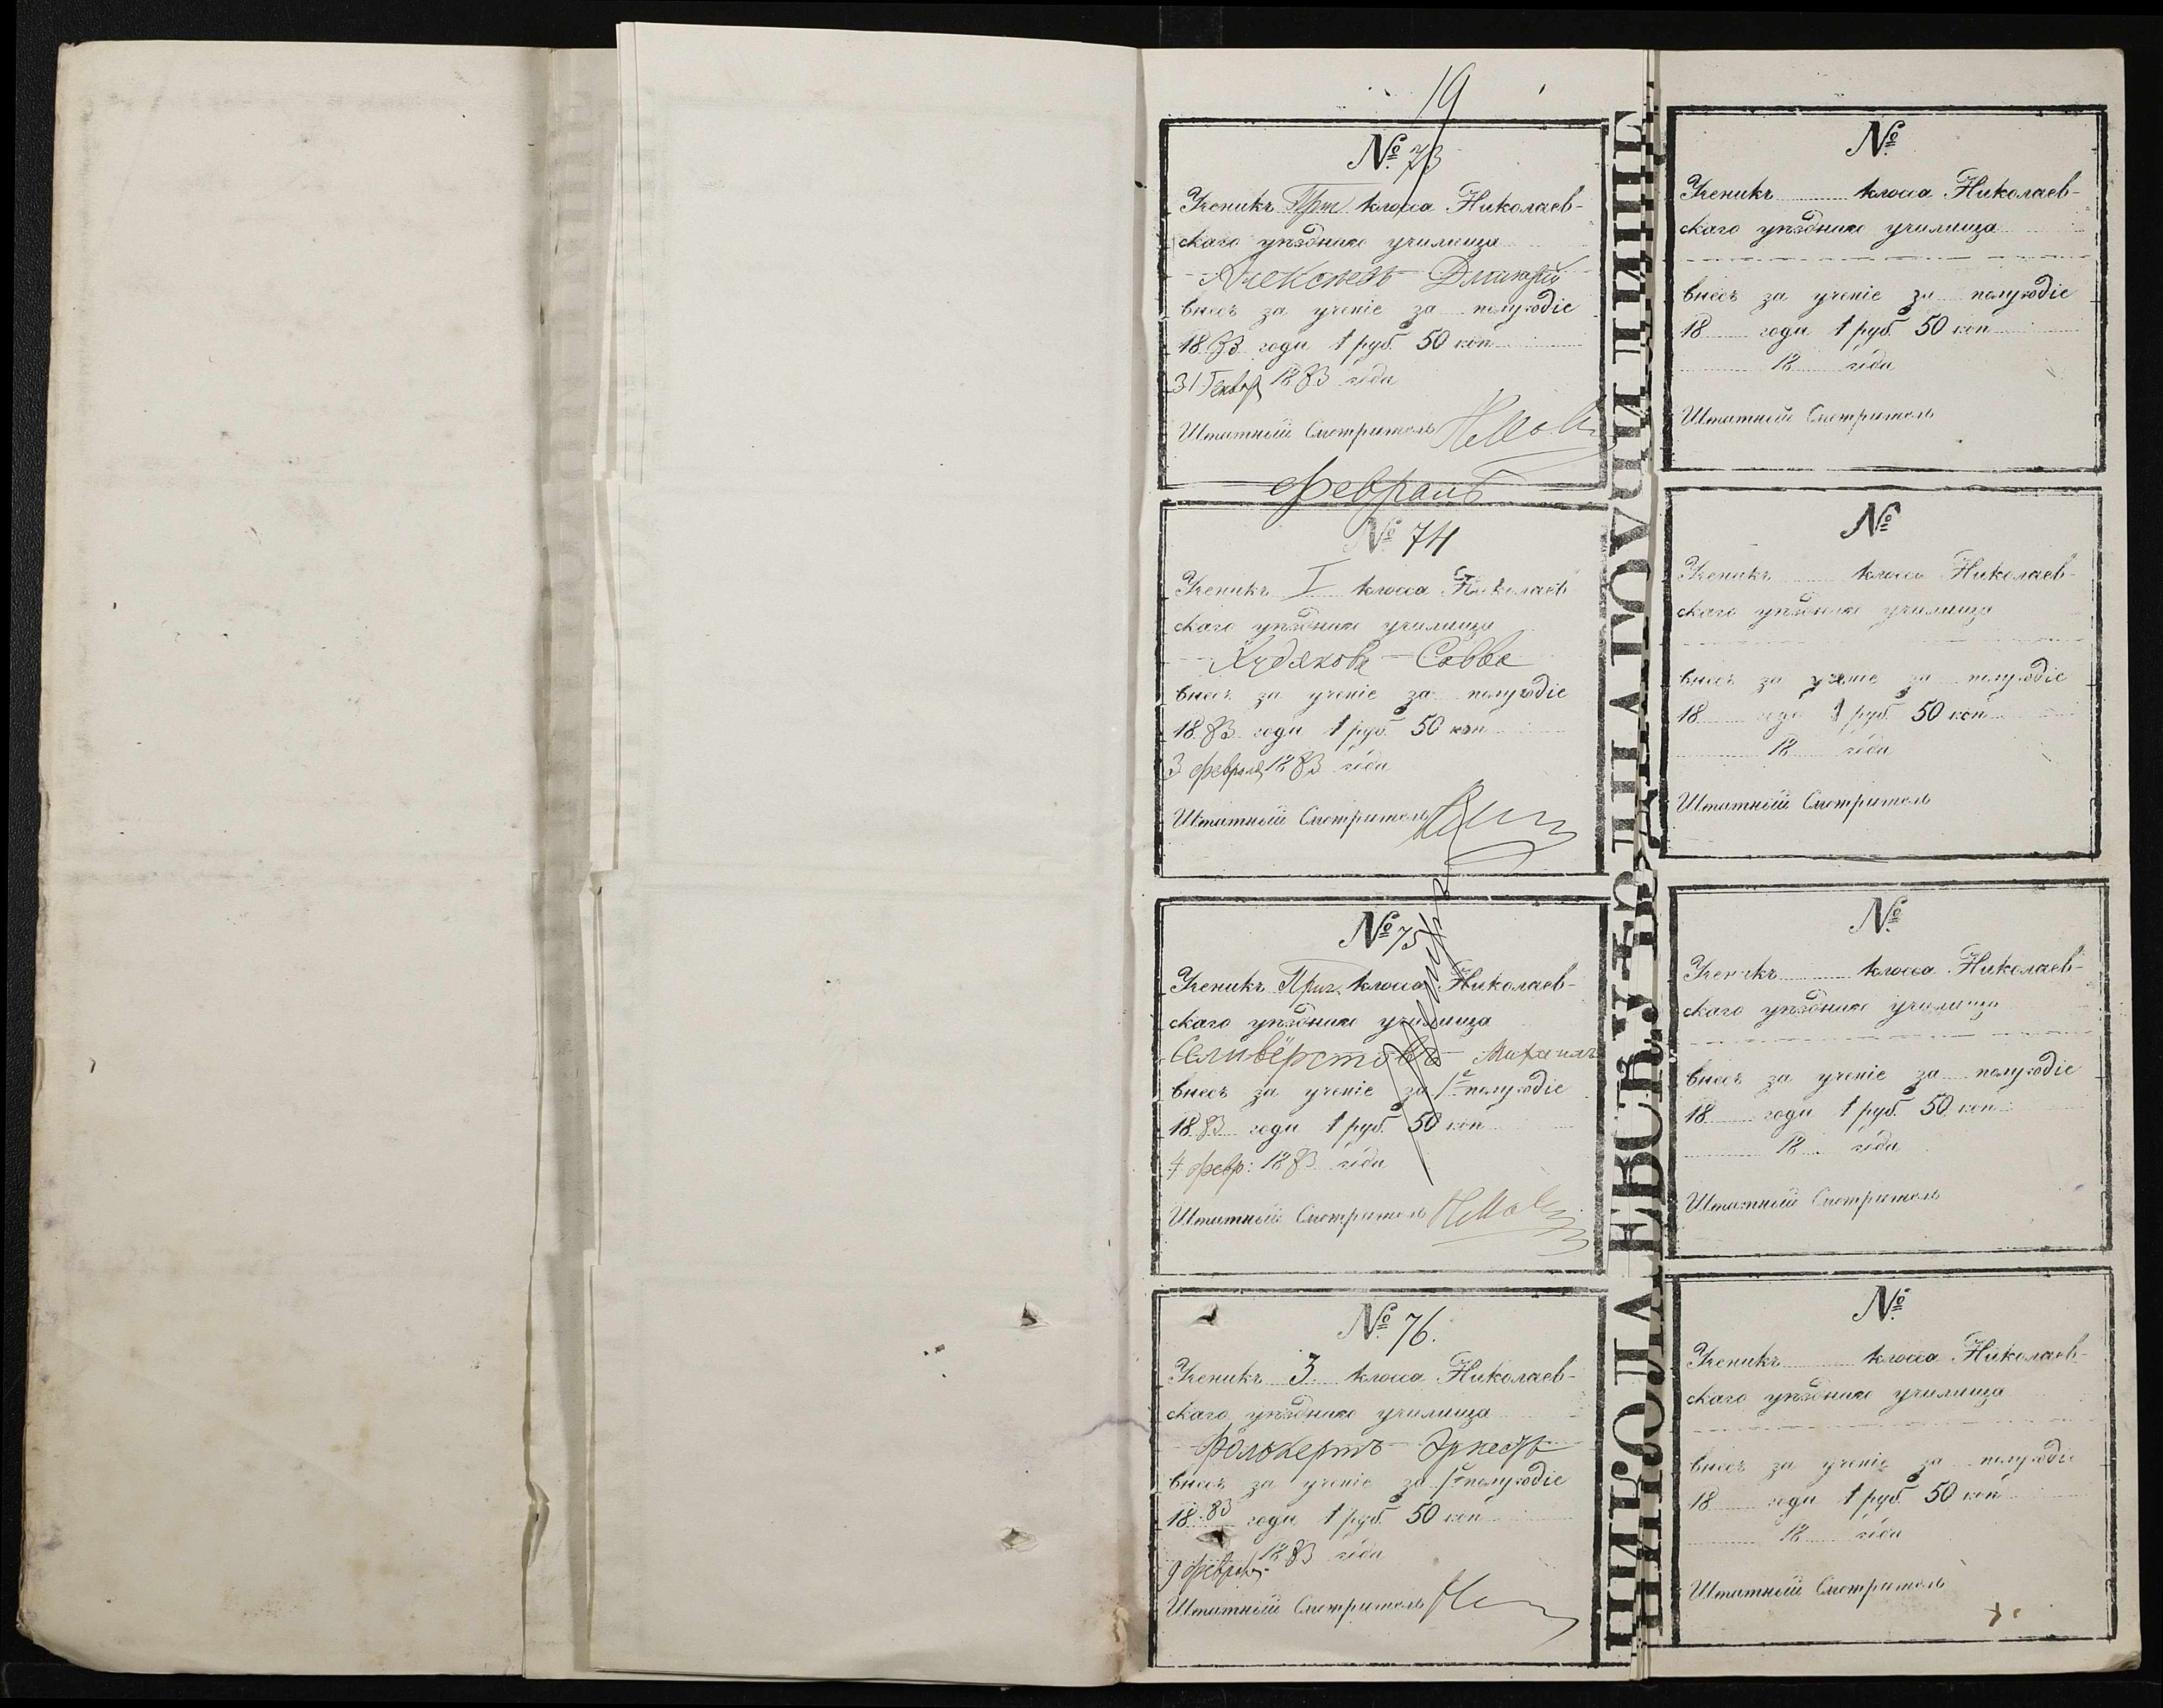 19
№ 73
Ученикъ Приг класса Николаев-
скаго уѣзднаго училища
Алексѣевъ Дмитрій
внесъ за ученіе за полугодіе
1883 года 1 руб. 50 коп
31 Января 1883 года
Штатный Смотритель
Февраль
№ 74
Ученикъ I класса Николаев
скаго уѣзднаго училища
Худяковъ Савва
внесъ за ученіе за полугодіе
1883 года 1 руб. 50 коп
3 февраля 1883 года
Штатный Смотритель
№ 75
Ученикъ Приг. класса Николаев-
скаго уѣзднаго училища
Селивёрстовъ Михаилъ
внесъ за ученіе за 1е полугодіе
1883 года 1 руб. 50 коп
4 февр: 1883 года
Штатный Смотритель
№ 76.
Ученикъ 3 класса Николаев-
скаго уѣзднаго училища
Фолькертъ Эрнестъ
внесъ за ученіе за 1е полугодіе
1883 года 1 руб. 50 коп
9 февраля 1883 года
Штатный Смотритель
№
Ученикъ класса Николаев-
скаго уѣзднаго училища
внесъ за ученіе за полугодіе
18 года 1 руб. 50 коп
18 года
Штатный Смотритель
№
Ученикъ класса Николаев-
скаго уѣзднаго училища
внесъ за ученіе за полугодіе
18 года 1 руб. 50 коп
18 года
Штатный Смотритель
№
Ученикъ класса Николаев-
скаго уѣзднаго училища
внесъ за ученіе за полугодіе
18 года 1 руб. 50 коп
18 года
Штатный Смотритель
№
Ученикъ класса Николаев-
скаго уѣзднаго училища
внесъ за ученіе за полугодіе
18 года 1 руб. 50 коп
18 года
Штатный Смотритель